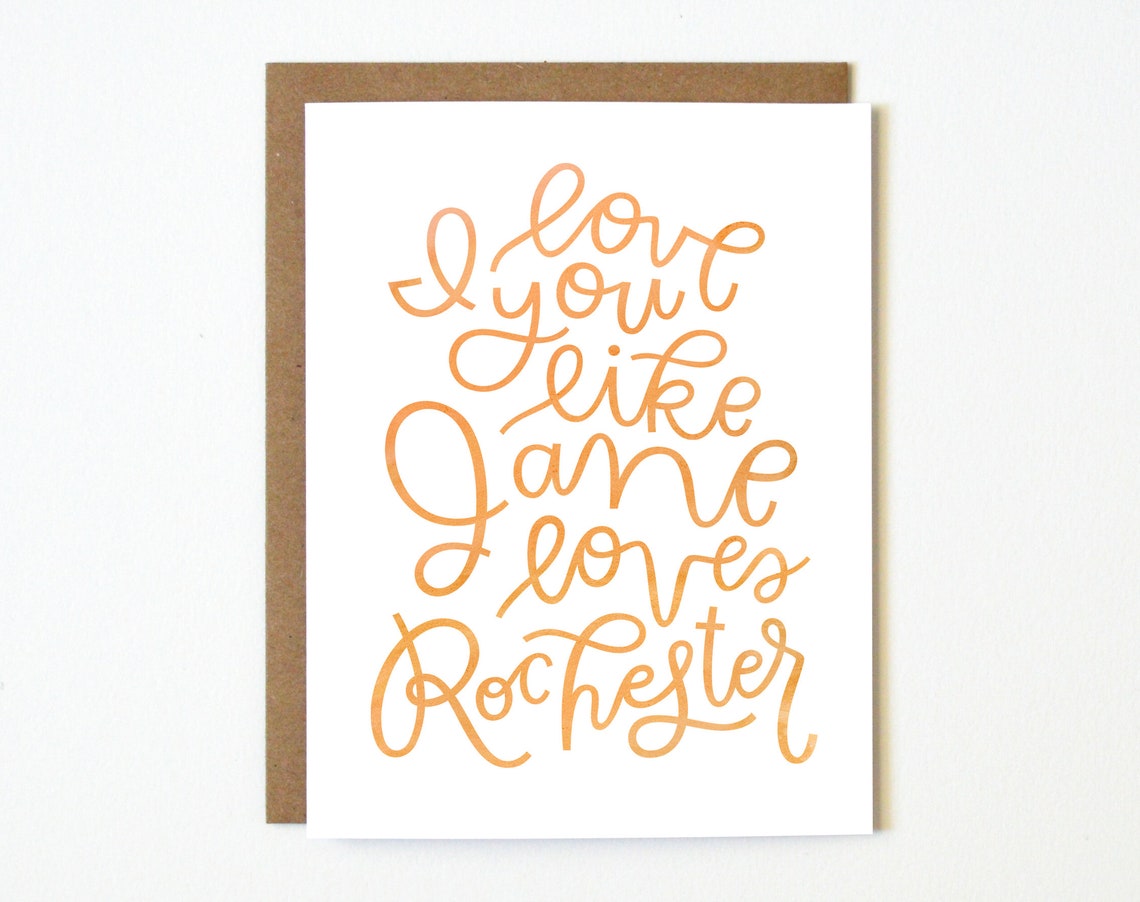 I love
you
like
Jane
loves
Rochester